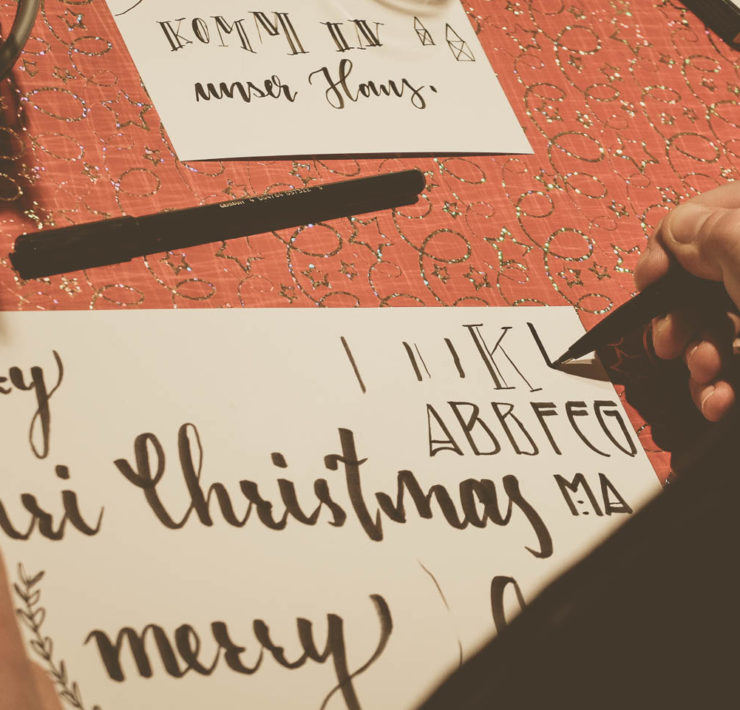 KOMM IN
unser Haus.
K
ABBFEG
Christmas
MA
merry